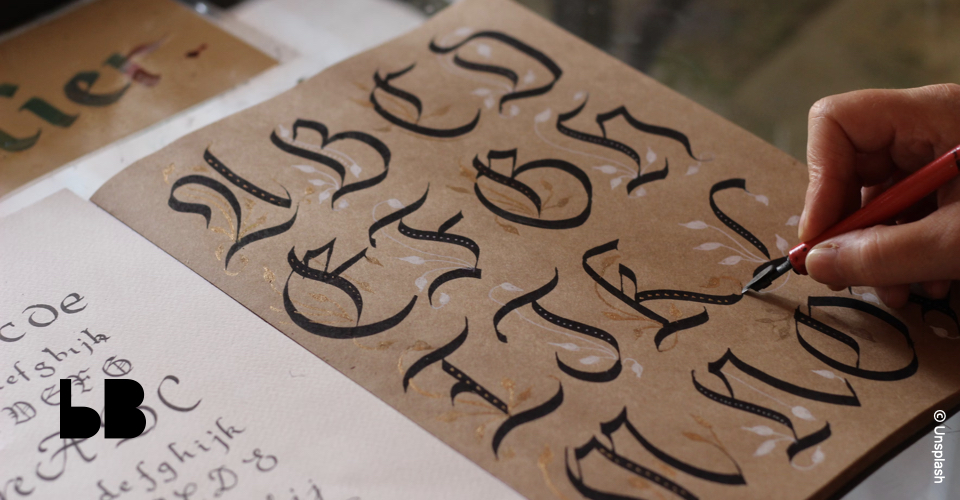 ier
A B C D
E F G H
I J K L
M N O
c de
efghijk
D E F G
A B C
defghijk
bB
© Unsplash